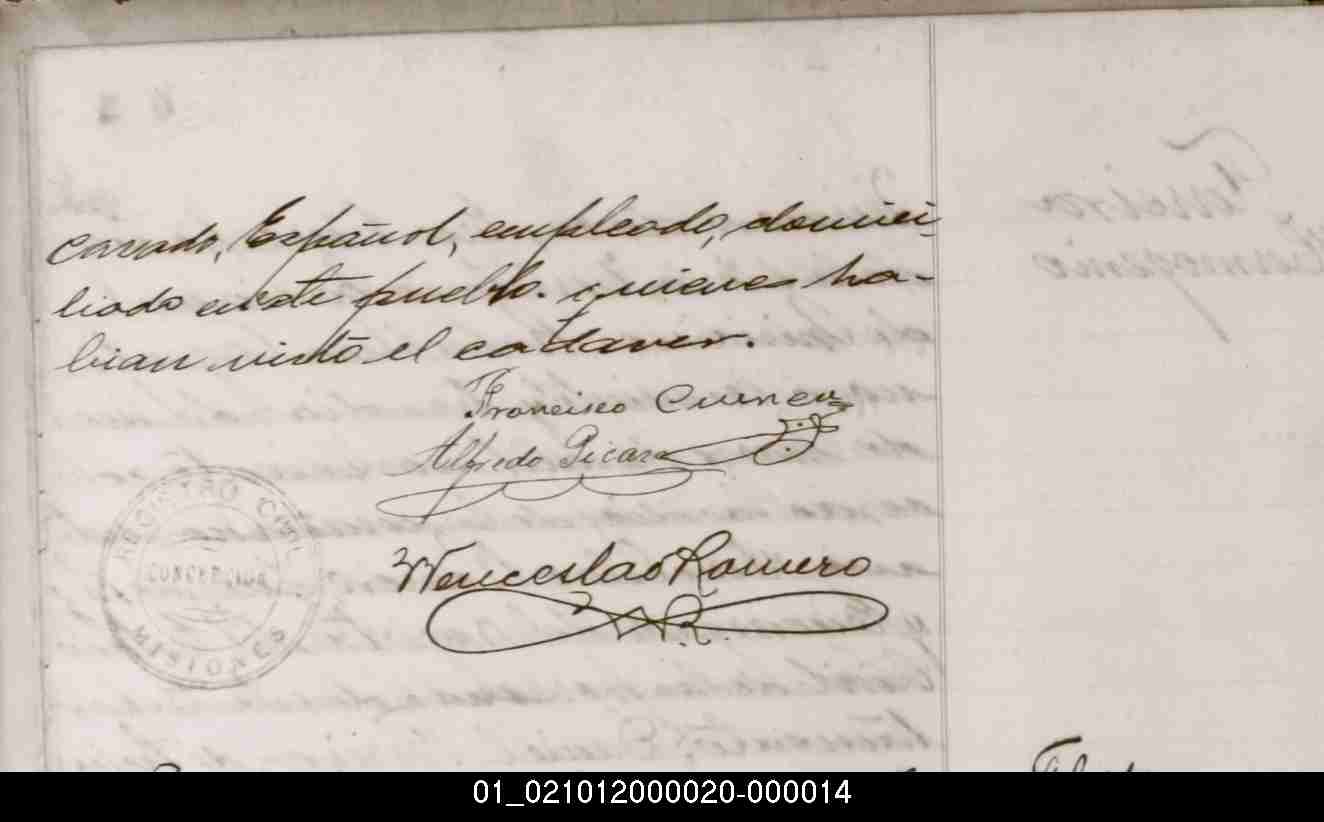 casado, Español, empleado, domici-
liado en este pueblo. quienes ha-
bian visto el cadaver.
Francisco Cuenca
Alfredo Picaza
REGISTRO CIVIL
CONCEPCION
MISIONES
Wenceslao Romero
W.R.
01_021012000020-000014